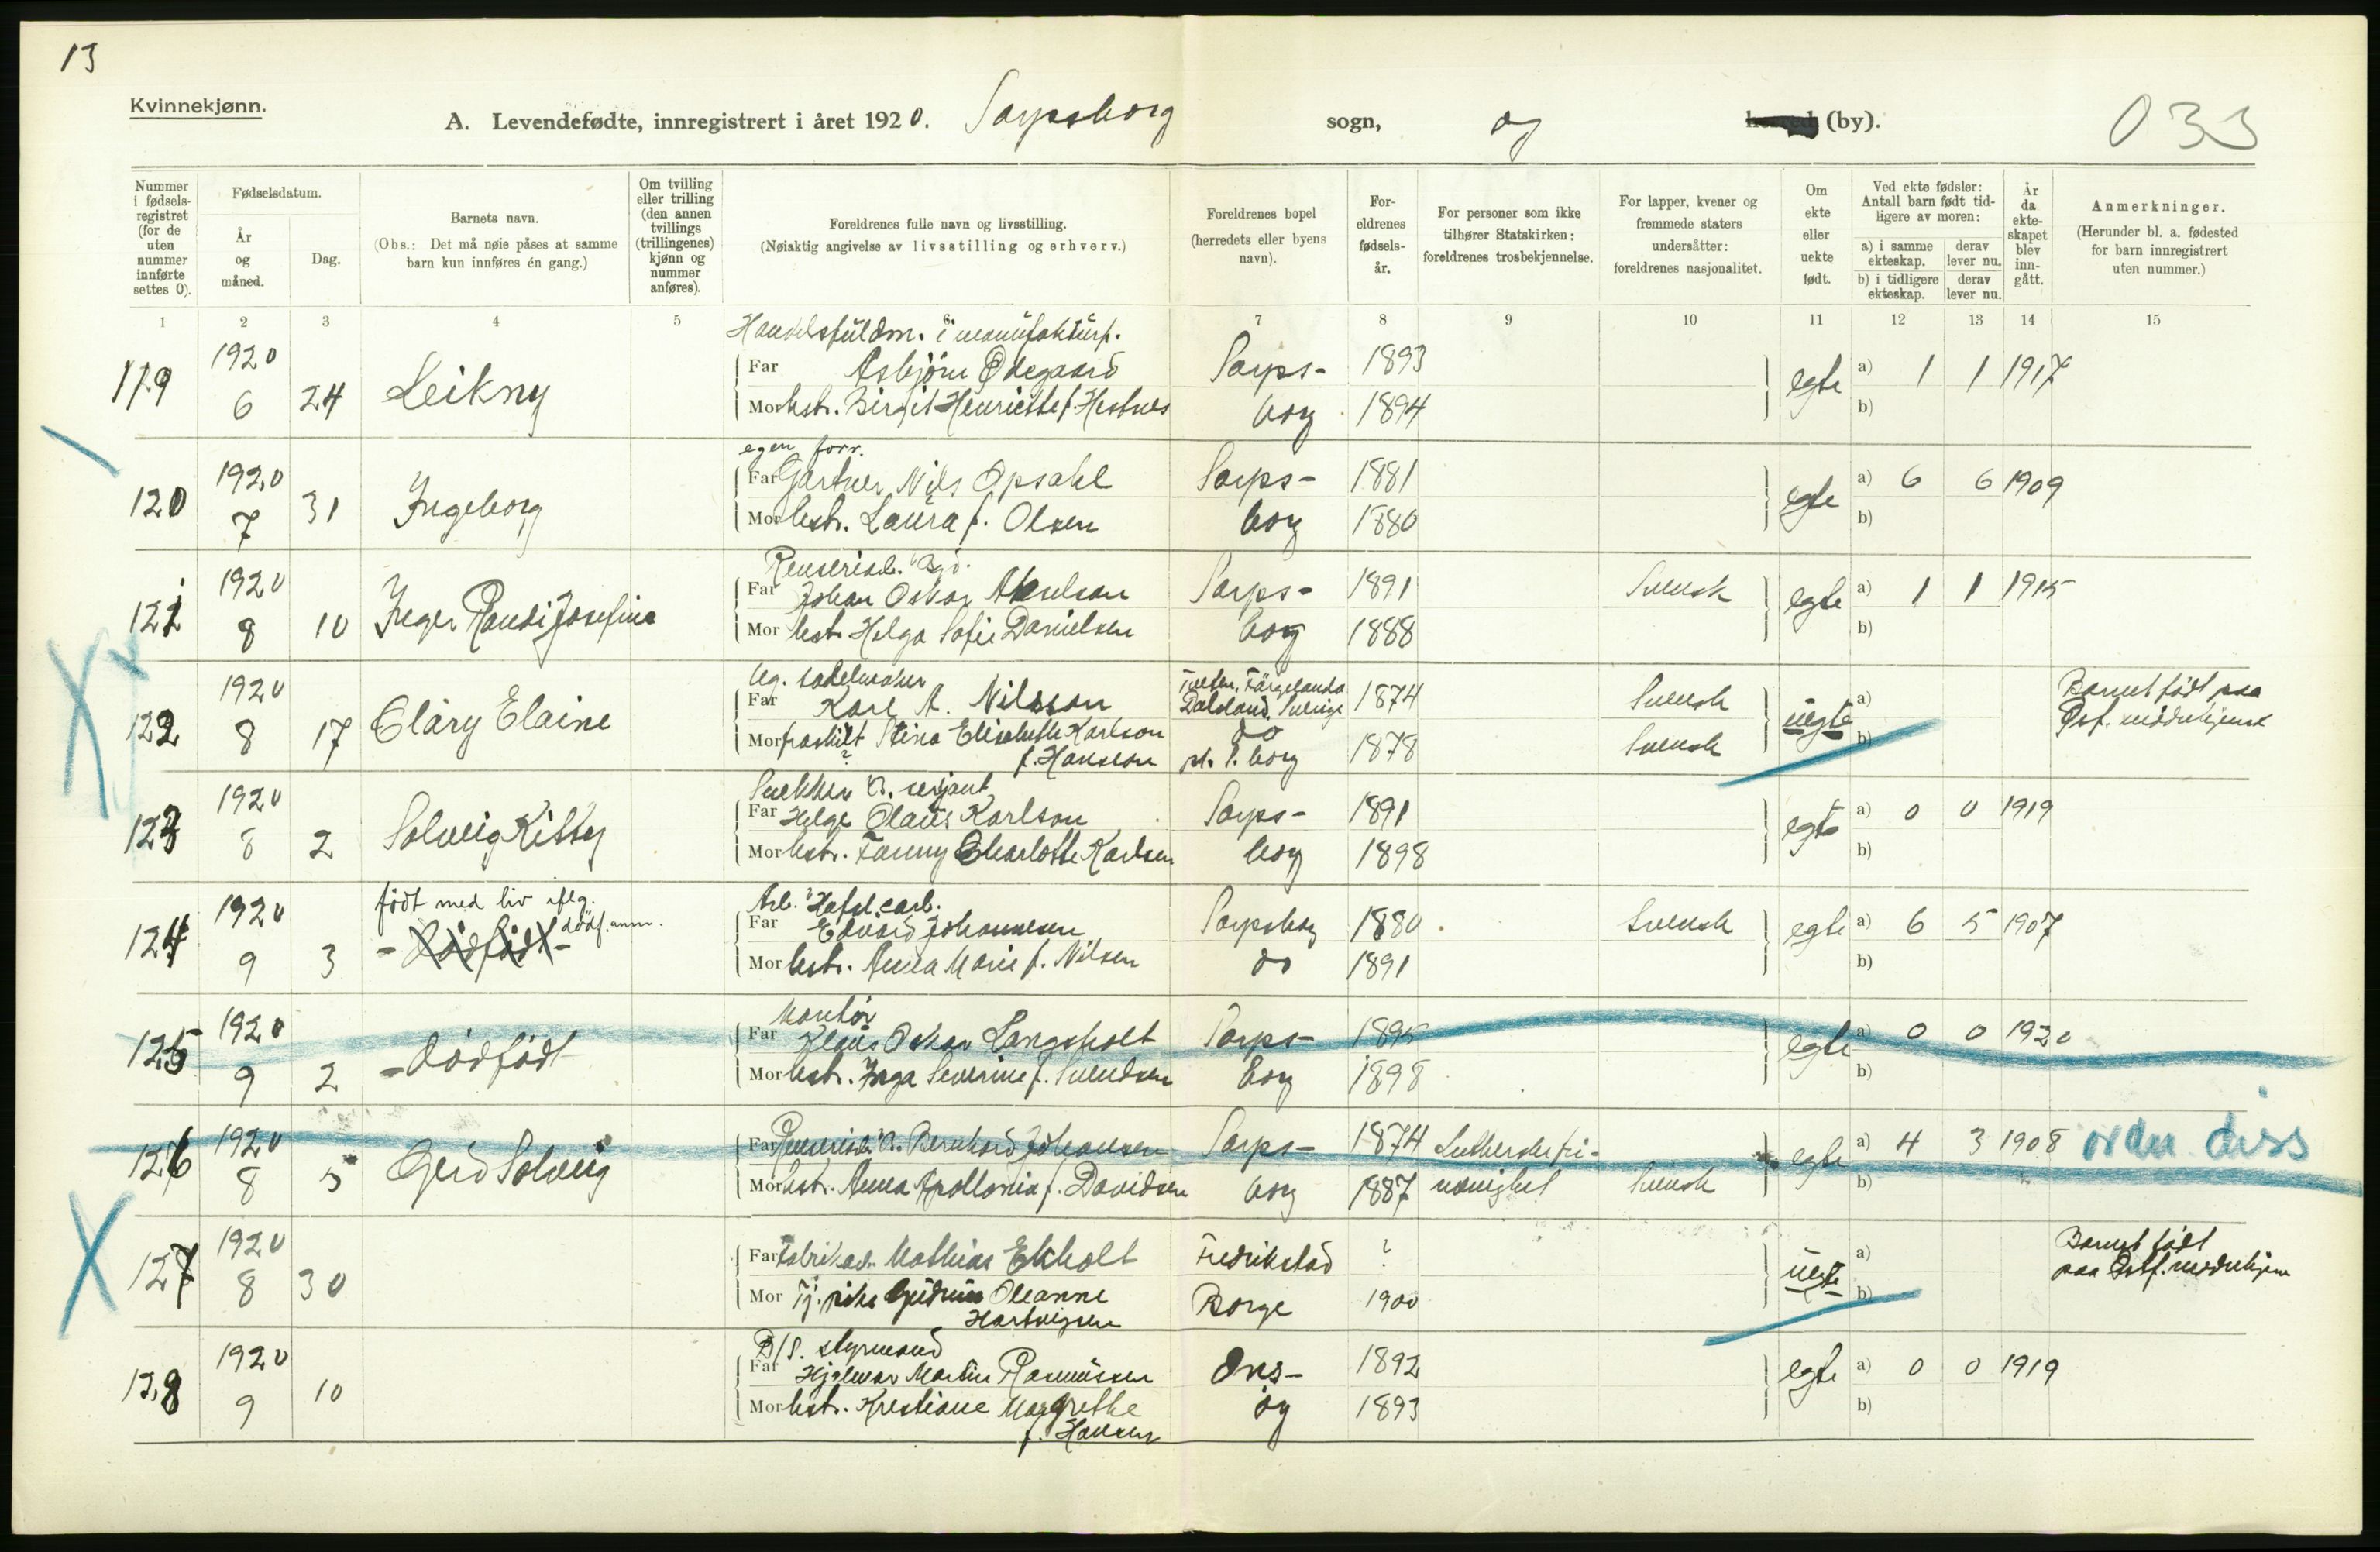 13
Kvinnekjønn.
A. Levendefødte, innregistrert i året 1920. Sarpsborg sogn, og (by).
033
Nummer i fødsels- registret (for de uten nummer innførte settes 0).
Fødselsdatum.
År og måned.
Dag.
Barnets navn.
(Obs.: Det må nøie påses at samme barn kun innføres én gang.)
Om tvilling eller trilling (den annen tvillings (trillingenes) kjønn og nummer anføres).
Foreldrenes fulle navn og livsstilling.
(Nøiaktig angivelse av livsstilling og erhverv.)
Foreldrenes bopel (herredets eller byens navn).
For- eldrenes fødsels- år.
For personer som ikke tilhører Statskirken: foreldrenes trosbekjennelse.
For lapper, kvener og fremmede staters undersåtter: foreldrenes nasjonalitet.
Om ekte eller uekte født.
Ved ekte fødsler: Antall barn født tid- ligere av moren:
a) i samme ekteskap.
derav lever nu.
b) i tidligere ekteskap.
derav lever nu.
År da ekte- skapet blev inn- gått.
Anmerkninger.
(Herunder bl. a. fødested for barn innregistrert uten nummer.)
1 2 3 4 5 7 8 9 10 11 12 13 14 15
Handelsfuldm. i manufakturf.
119 1920 6 24 Leikny
Far Asbjörn Ødegaard Sarps- 1893 egte a) 1 1 1917
Mor hstr. Birgit Henriette f. Hestnes borg 1894 b)
egen forr.
120 1920 7 31 Ingeborg
Far Gartner Nils Opsahl Sarps- 1881 egte a) 6 6 1909
Mor hstr. Laura f. Olsen borg 1880 b)
121 1920 8 10 Inger Randi Josefine
Far Johan Oskar Akselson Sarps- 1891 Svensk egte a) 1 1 1915
Mor hstr. Helga Sofie Danielsen borg 1888 b)
122 1920 8 17 Clary Elaine
Far Karl A. Nilsson Färgelanda Dalsland, Sverige 1874 Svensk uegte a)
Mor fraskilt Stina Elisabeth Karlson do 1878 Svensk b)
? f. Hansson pt. S.borg
Barnet født paa
Østf. mödrehjem
123 1920 8 2 Solveig Kitty
Snekker B. serjant
Far Helge Olaus Karlson Sarps- 1891 egte a) 0 0 1919
Mor hstr. Fanny Charlotte Karlsen borg 1898 b)
født med liv iflg. dödf. anm.
124 1920 9 3 - Dødfødt -
Arb. Hafsl. carb.
Far Edvard Johannesen Sarpsborg 1880 Svensk egte a) 6 5 1907
Mor hstr. Anna Marie f. Nilsen do 1891 b)
125 1920 9 2 - Dødfødt
Kontor
Far Klaus Oskar Langsholt Sarps- 1895 egte a) 0 0 1920
Mor hstr. Inga Severine f. Svendsen borg 1898 b)
126 1920 8 5 Gerd Solveig
Far Renseriarb. B. Bernhard Johansen Sarps- 1874 Lutherske fri- egte a) 4 3 1908 diss
Mor hstr. Anna Apollonia f. Davidsen borg 1887 menighet Svensk b)
127 1920 8 30
Far Fabrikarb. Mathias Ekholt Fredrikstad ? uegte a)
Mor Tj. pike Gudrun Oleanne Borge 1900 b)
Hartvigsen
Barnet født
paa Østf. mödrehjem
128 1920 9 10
D/S. styrmand
Far Hjalmar Martin Rasmussen Ons- 1892 egte a) 0 0 1919
Mor hstr. Kristiane Margrethe øy 1893 b)
f. Hansen